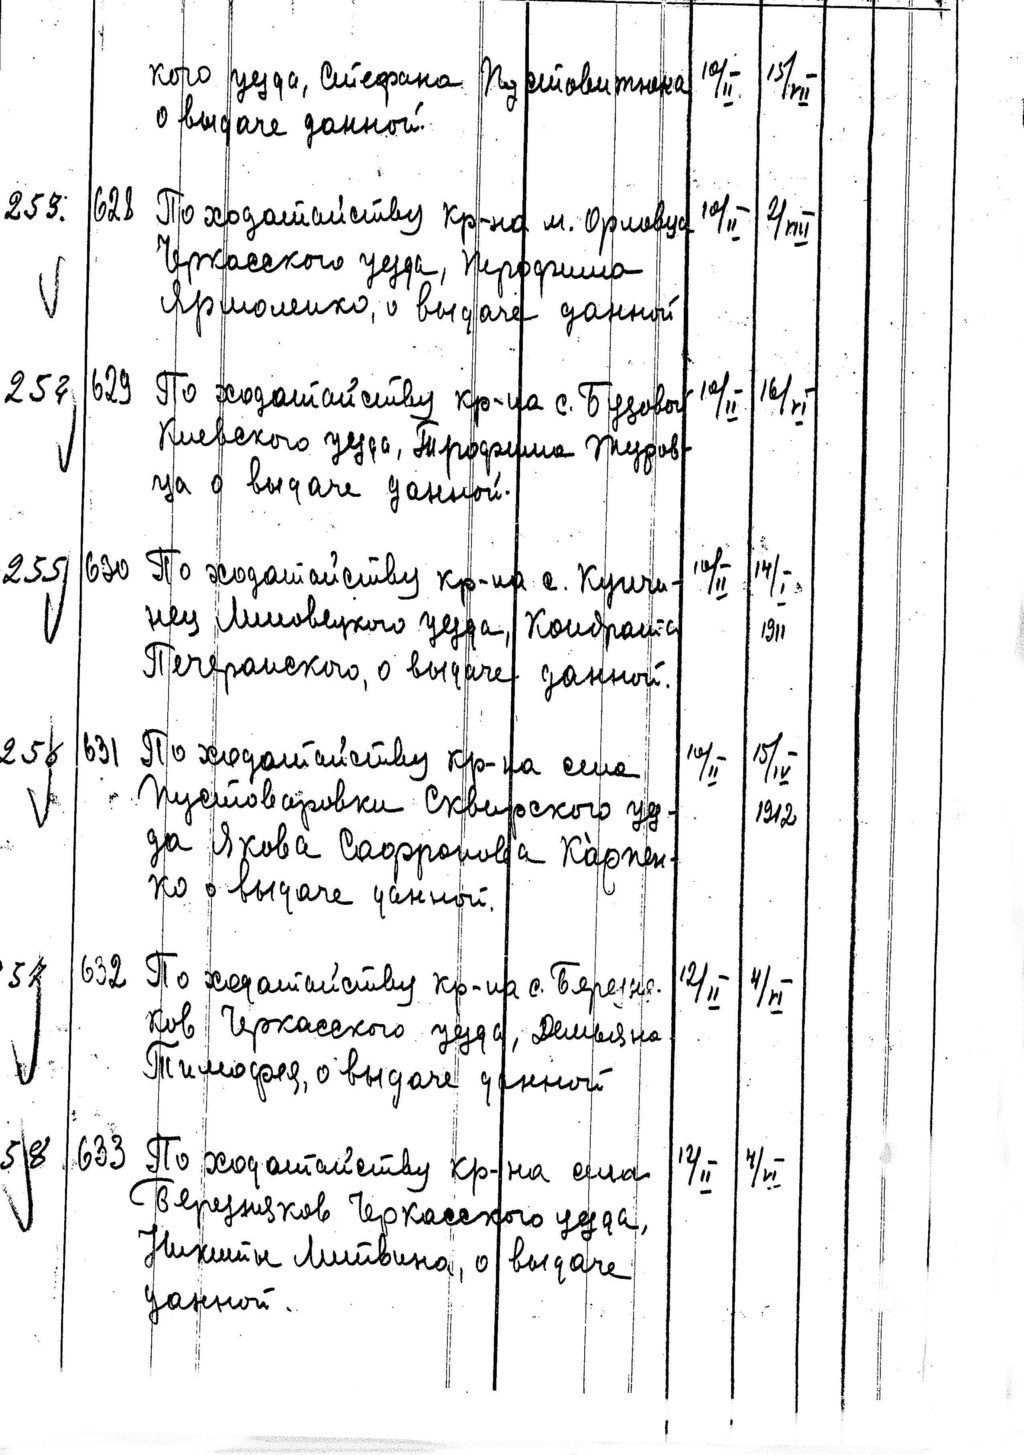 кого уезда, Стефана Пустовитнока 10/II 15/VII
о выдаче данной.
253. 628 По ходатайству кр-на м. Орловца 10/II 2/VIII
Черкасского уезда,
Ярмоленко, о выдаче данной
254 629 По ходатайству кр-на с. Бузовой 10/II 16/VI
Киевского уезда, Трофима Журов-
ца о выдаче данной.
255 630 По ходатайству кр-на с. Купчи- 10/II 14/I
нец Липовецкого уезда, Кондрата 1911
Печеранского, о выдаче данной.
256 631 По ходатайству кр-на села 10/II 15/IV
Пустоваровки Сквирского уез- 1912
да Якова Саффронова Карпен-
ко о выдаче данной.
57 632 По ходатайству кр-на с. Березня- 12/II 4/VI
ков Черкасского уезда, Демьяна
Тимофея, о выдаче данной
58 633 По ходатайству кр-на села 12/II 4/VI
Березняков Черкасского уезда,
Никиты Литвина, о выдаче
данной.